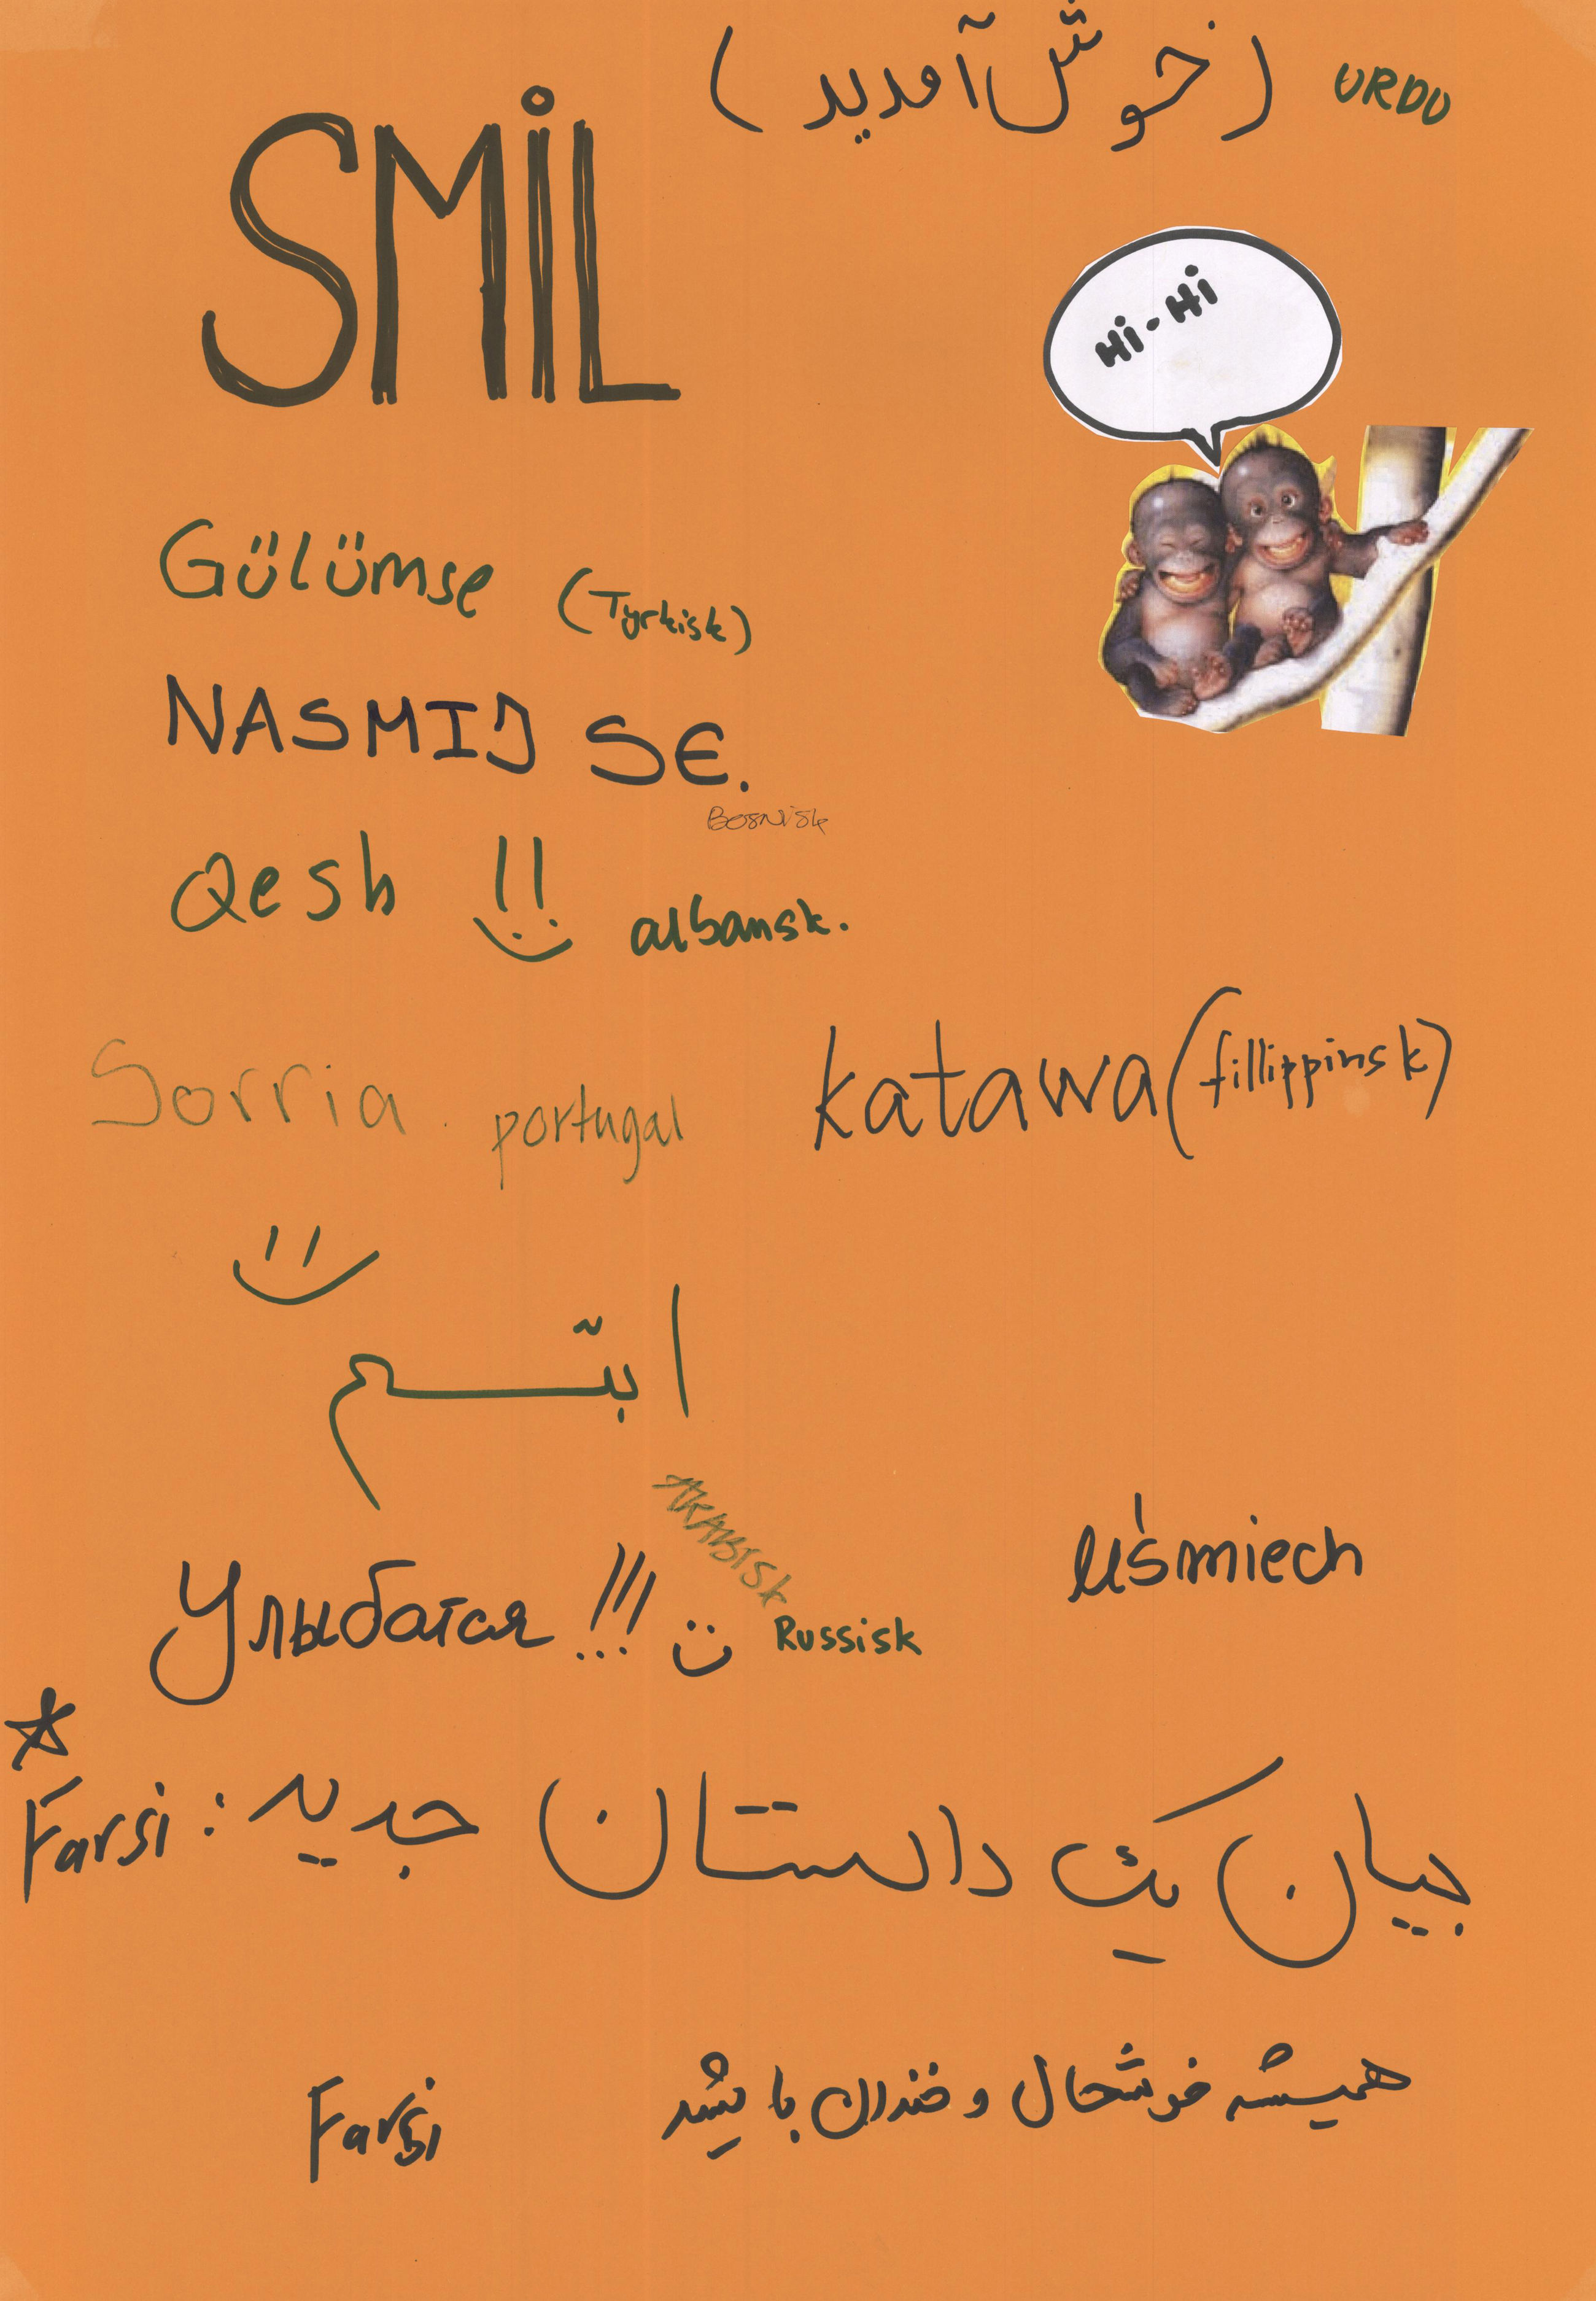 (خوش آمدید) URDU
SMiL
Hi-Hi
Gülümse (Tyrkisk)
NASMIJ SE.
Bosnisk
Qesh !! albansk.
Sorria. portugal
katawa (fillippinsk)
ابتسم
ARABISK
uśmiech
Улыбатся !!! Russisk
Farsi: بیان یک داستان جدید
Farsi همیشه خوشحال و خندان باشید